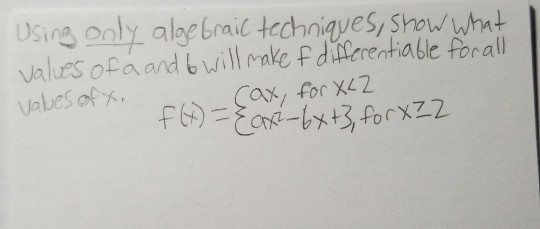 Using only algebraic techniques, show what
values of a and b will make f differentiable for all
values of x.
f(x) = { ax, for x<2
ax²-bx+3, for x≥2